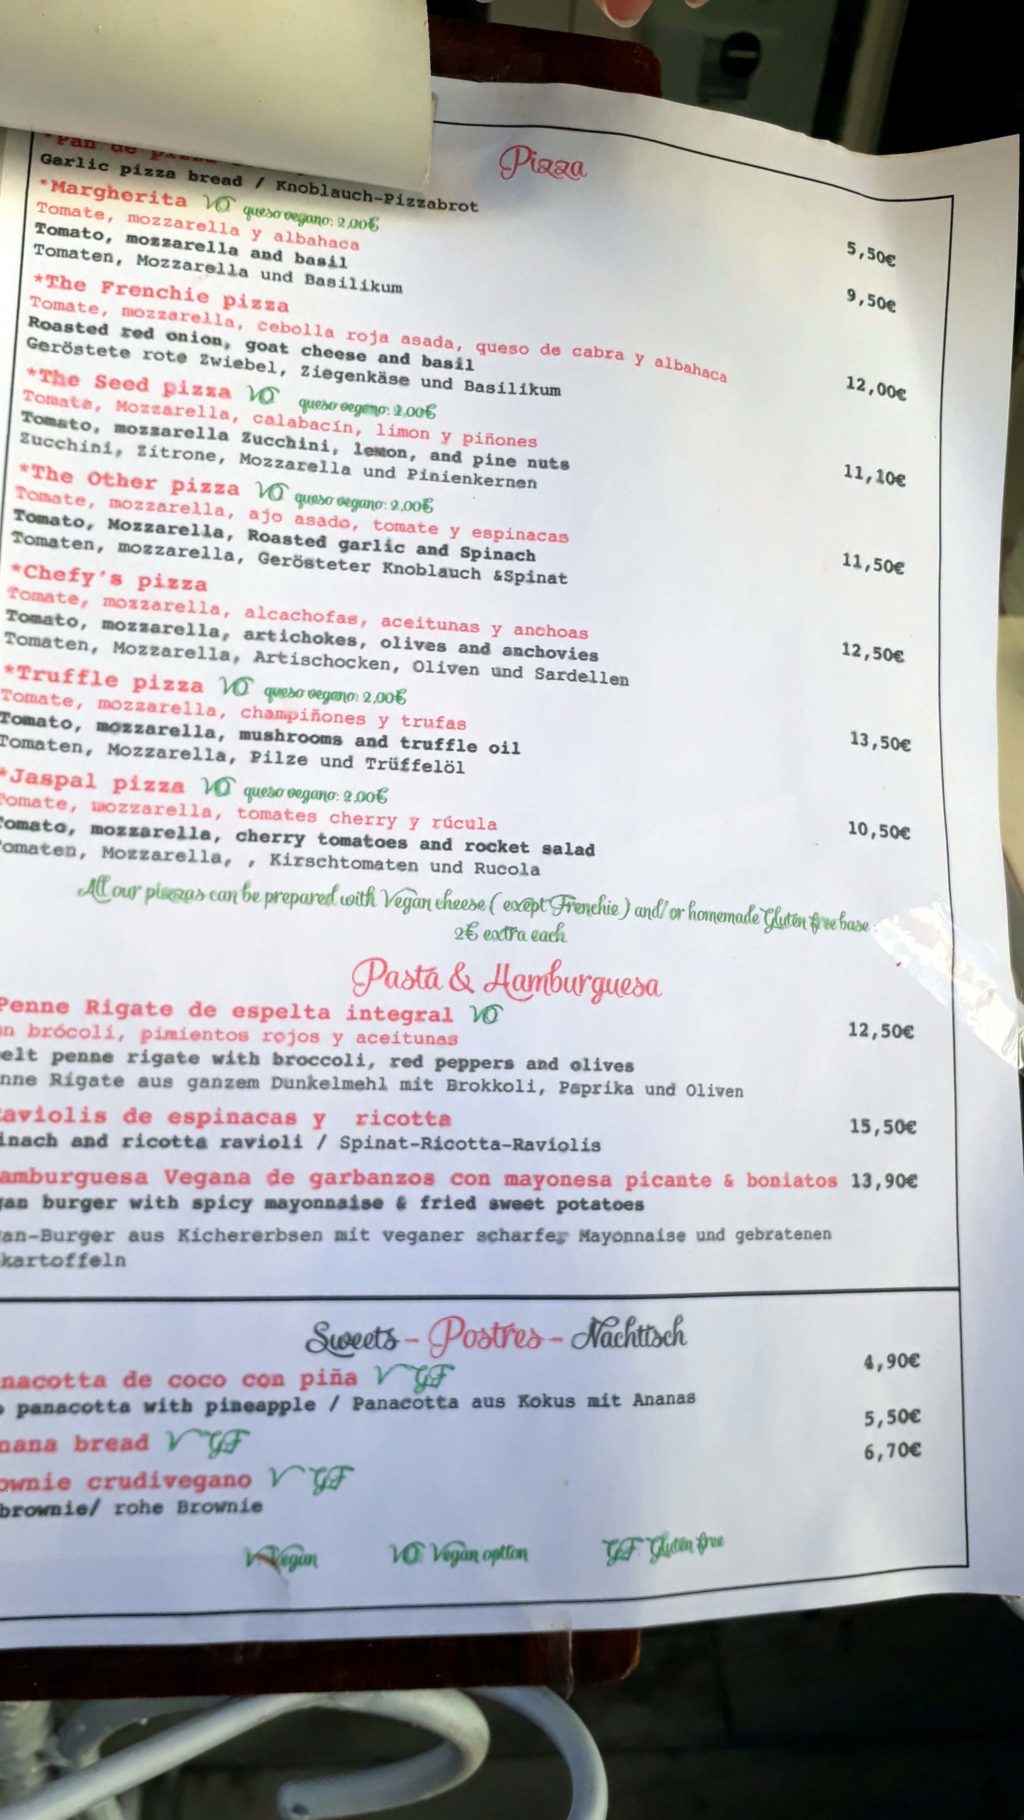 Pizza
*Pan de
Garlic pizza bread / Knoblauch-Pizzabrot 5,50€
*Margherita VO queso vegano: 2,00€ 9,50€
Tomate, mozzarella y albahaca
Tomato, mozzarella and basil
Tomaten, Mozzarella und Basilikum
*The Frenchie pizza 12,00€
Tomate, mozzarella, cebolla roja asada, queso de cabra y albahaca
Roasted red onion, goat cheese and basil
Geröstete rote Zwiebel, Ziegenkäse und Basilikum
*The Seed pizza VO queso vegano: 2,00€ 11,10€
Tomate, Mozzarella, calabacín, limon y piñones
Tomato, mozzarella Zucchini, lemon, and pine nuts
Zucchini, Zitrone, Mozzarella und Pinienkernen
*The Other pizza VO queso vegano: 2,00€ 11,50€
Tomate, mozzarella, ajo asado, tomate y espinacas
Tomato, Mozzarella, Roasted garlic and Spinach
Tomaten, mozzarella, Gerösteter Knoblauch &Spinat
*Chefy's pizza 12,50€
Tomate, mozzarella, alcachofas, aceitunas y anchoas
Tomato, mozzarella, artichokes, olives and anchovies
Tomaten, Mozzarella, Artischocken, Oliven und Sardellen
*Truffle pizza VO queso vegano: 2,00€ 13,50€
Tomate, mozzarella, champiñones y trufas
Tomato, mozzarella, mushrooms and truffle oil
Tomaten, Mozzarella, Pilze und Trüffelöl
*Jaspal pizza VO queso vegano: 2,00€ 10,50€
Tomate, mozzarella, tomates cherry y rúcula
Tomato, mozzarella, cherry tomatoes and rocket salad
omaten, Mozzarella, , Kirschtomaten und Rucola
All our pizzas can be prepared with Vegan cheese ( except Frenchie ) and/ or homemade Gluten free base
2€ extra each
Pasta & Hamburguesa
Penne Rigate de espelta integral VO 12,50€
n brócoli, pimientos rojos y aceitunas
elt penne rigate with broccoli, red peppers and olives
nne Rigate aus ganzem Dunkelmehl mit Brokkoli, Paprika und Oliven
aviolis de espinacas y ricotta 15,50€
inach and ricotta ravioli / Spinat-Ricotta-Raviolis
amburguesa Vegana de garbanzos con mayonesa picante & boniatos 13,90€
an burger with spicy mayonnaise & fried sweet potatoes
an-Burger aus Kichererbsen mit veganer scharfer Mayonnaise und gebratenen
kartoffeln
Sweets - Postres - Nachttsch
nacotta de coco con piña V GF 4,90€
panacotta with pineapple / Panacotta aus Kokus mit Ananas
nana bread V GF 5,50€
ownie crudivegano V GF 6,70€
brownie/ rohe Brownie
V Vegan VO: Vegan option GF: Gluten free